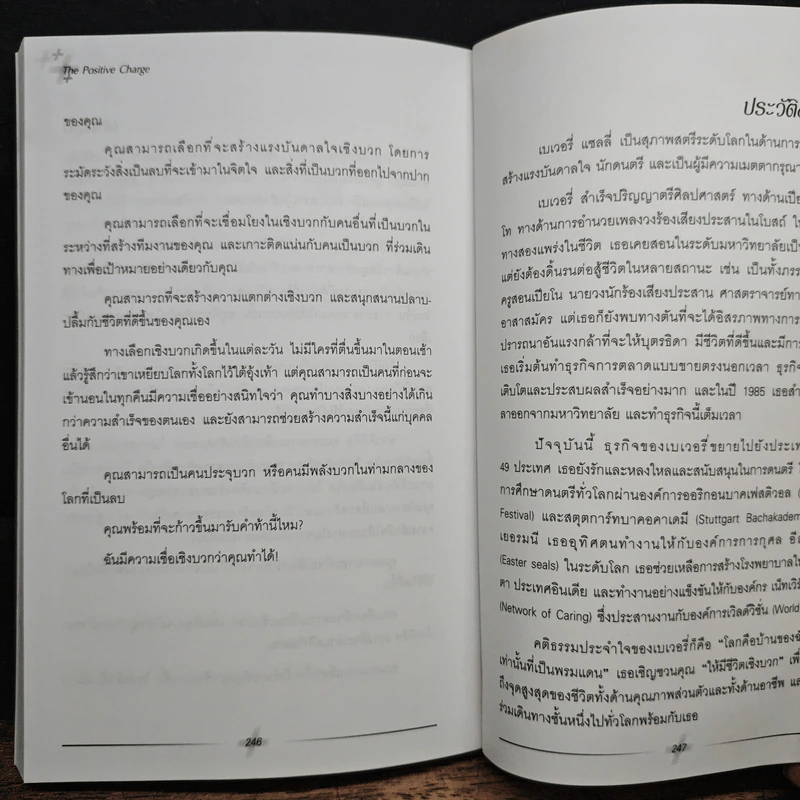 The Positive Charge
ของคุณ
คุณสามารถเลือกที่จะสร้างแรงบันดาลใจเชิงบวก โดยการ
ระมัดระวังสิ่งเป็นลบที่จะเข้ามาในจิตใจ และสิ่งที่เป็นบวกที่ออกไปจากปาก
ของคุณ
คุณสามารถเลือกที่จะเชื่อมโยงในเชิงบวกกับคนอื่นที่เป็นบวกใน
ระหว่างที่สร้างทีมงานของคุณ และเกาะติดแน่นกับคนเป็นบวก ที่ร่วมเดิน
ทางเพื่อเป้าหมายอย่างเดียวกับคุณ
คุณสามารถที่จะสร้างความแตกต่างเชิงบวก และสนุกสนานปลาบ-
ปลื้มกับชีวิตที่ดีขึ้นของคุณเอง
ทางเลือกเชิงบวกเกิดขึ้นในแต่ละวัน ไม่มีใครที่ตื่นขึ้นมาในตอนเช้า
แล้วรู้สึกว่าเขาเหยียบโลกทั้งโลกไว้ใต้อุ้งเท้า แต่คุณสามารถเป็นคนที่ก่อนจะ
เข้านอนในทุกคืนมีความเชื่ออย่างสนิทใจว่า คุณทำบางสิ่งบางอย่างได้เกิน
กว่าความสำเร็จของตนเอง และยังสามารถช่วยสร้างความสำเร็จนี้แก่บุคคล
อื่นได้
คุณสามารถเป็นคนประจุบวก หรือคนมีพลังบวกในท่ามกลางของ
โลกที่เป็นลบ
คุณพร้อมที่จะก้าวขึ้นมารับคำท้านี้ไหม?
ฉันมีความเชื่อเชิงบวกว่าคุณทำได้!
246
ประวัติ
เบเวอรี่ แซลลี่ เป็นสุภาพสตรีระดับโลกในด้านการ
สร้างแรงบันดาลใจ นักดนตรี และเป็นผู้มีความเมตตากรุณา
เบเวอรี่ สำเร็จปริญญาตรีศิลปศาสตร์ ทางด้านเปีย
โท ทางด้านการอำนวยเพลงวงร้องเสียงประสานในโบสถ์
ทางสองแพร่งในชีวิต เธอเคยสอนในระดับมหาวิทยาลัยเป็น
แต่ยังต้องดิ้นรนต่อสู้ชีวิตในหลายสถานะ เช่น เป็นทั้งภรร
ครูสอนเปียโน นายวงนักร้องเสียงประสาน ศาสตราจารย์ทา
อาสาสมัคร แต่เธอก็ยังพบทางตันที่จะได้อิสรภาพทางการ
ปรารถนาอันแรงกล้าที่จะให้บุตรธิดา มีชีวิตที่ดีขึ้นและมีการ
เธอเริ่มต้นทำธุรกิจการตลาดแบบขายตรงนอกเวลา ธุรกิจ
เติบโตและประสบผลสำเร็จอย่างมาก และในปี 1985 เธอ
ลาออกจากมหาวิทยาลัย และทำธุรกิจนี้เต็มเวลา
ปัจจุบันนี้ ธุรกิจของเบเวอรี่ขยายไปยังประเท
49 ประเทศ เธอยังรักและหลงใหลและสนับสนุนในการดนตรี
การศึกษาดนตรีทั่วโลกผ่านองค์การออริกอนบาคเฟสติวอล
Festival) และสตุตการ์ทบาคอคาเดมี (Stuttgart Bachakadem
เยอรมนี เธออุทิศตนทำงานให้กับองค์การการกุศล
(Easter seals) ในระดับโลก เธอช่วยเหลือการสร้างโรงพยาบาลใน
ตา ประเทศอินเดีย และทำงานอย่างแข็งขันให้กับองค์กร
(Network of Caring) ซึ่งประสานงานกับองค์การเวิลด์วิชั่น (World
คติธรรมประจำใจของเบเวอรี่ก็คือ "โลกคือบ้านของฉัน
เท่านั้นที่เป็นพรมแดน" เธอเชิญชวนคุณ "ให้มีชีวิตเชิงบวก"
ถึงจุดสูงสุดของชีวิตทั้งด้านคุณภาพส่วนตัวและทั้งด้านอาชีพ
ร่วมเดินทางชั้นหนึ่งไปทั่วโลกพร้อมกับเธอ
247